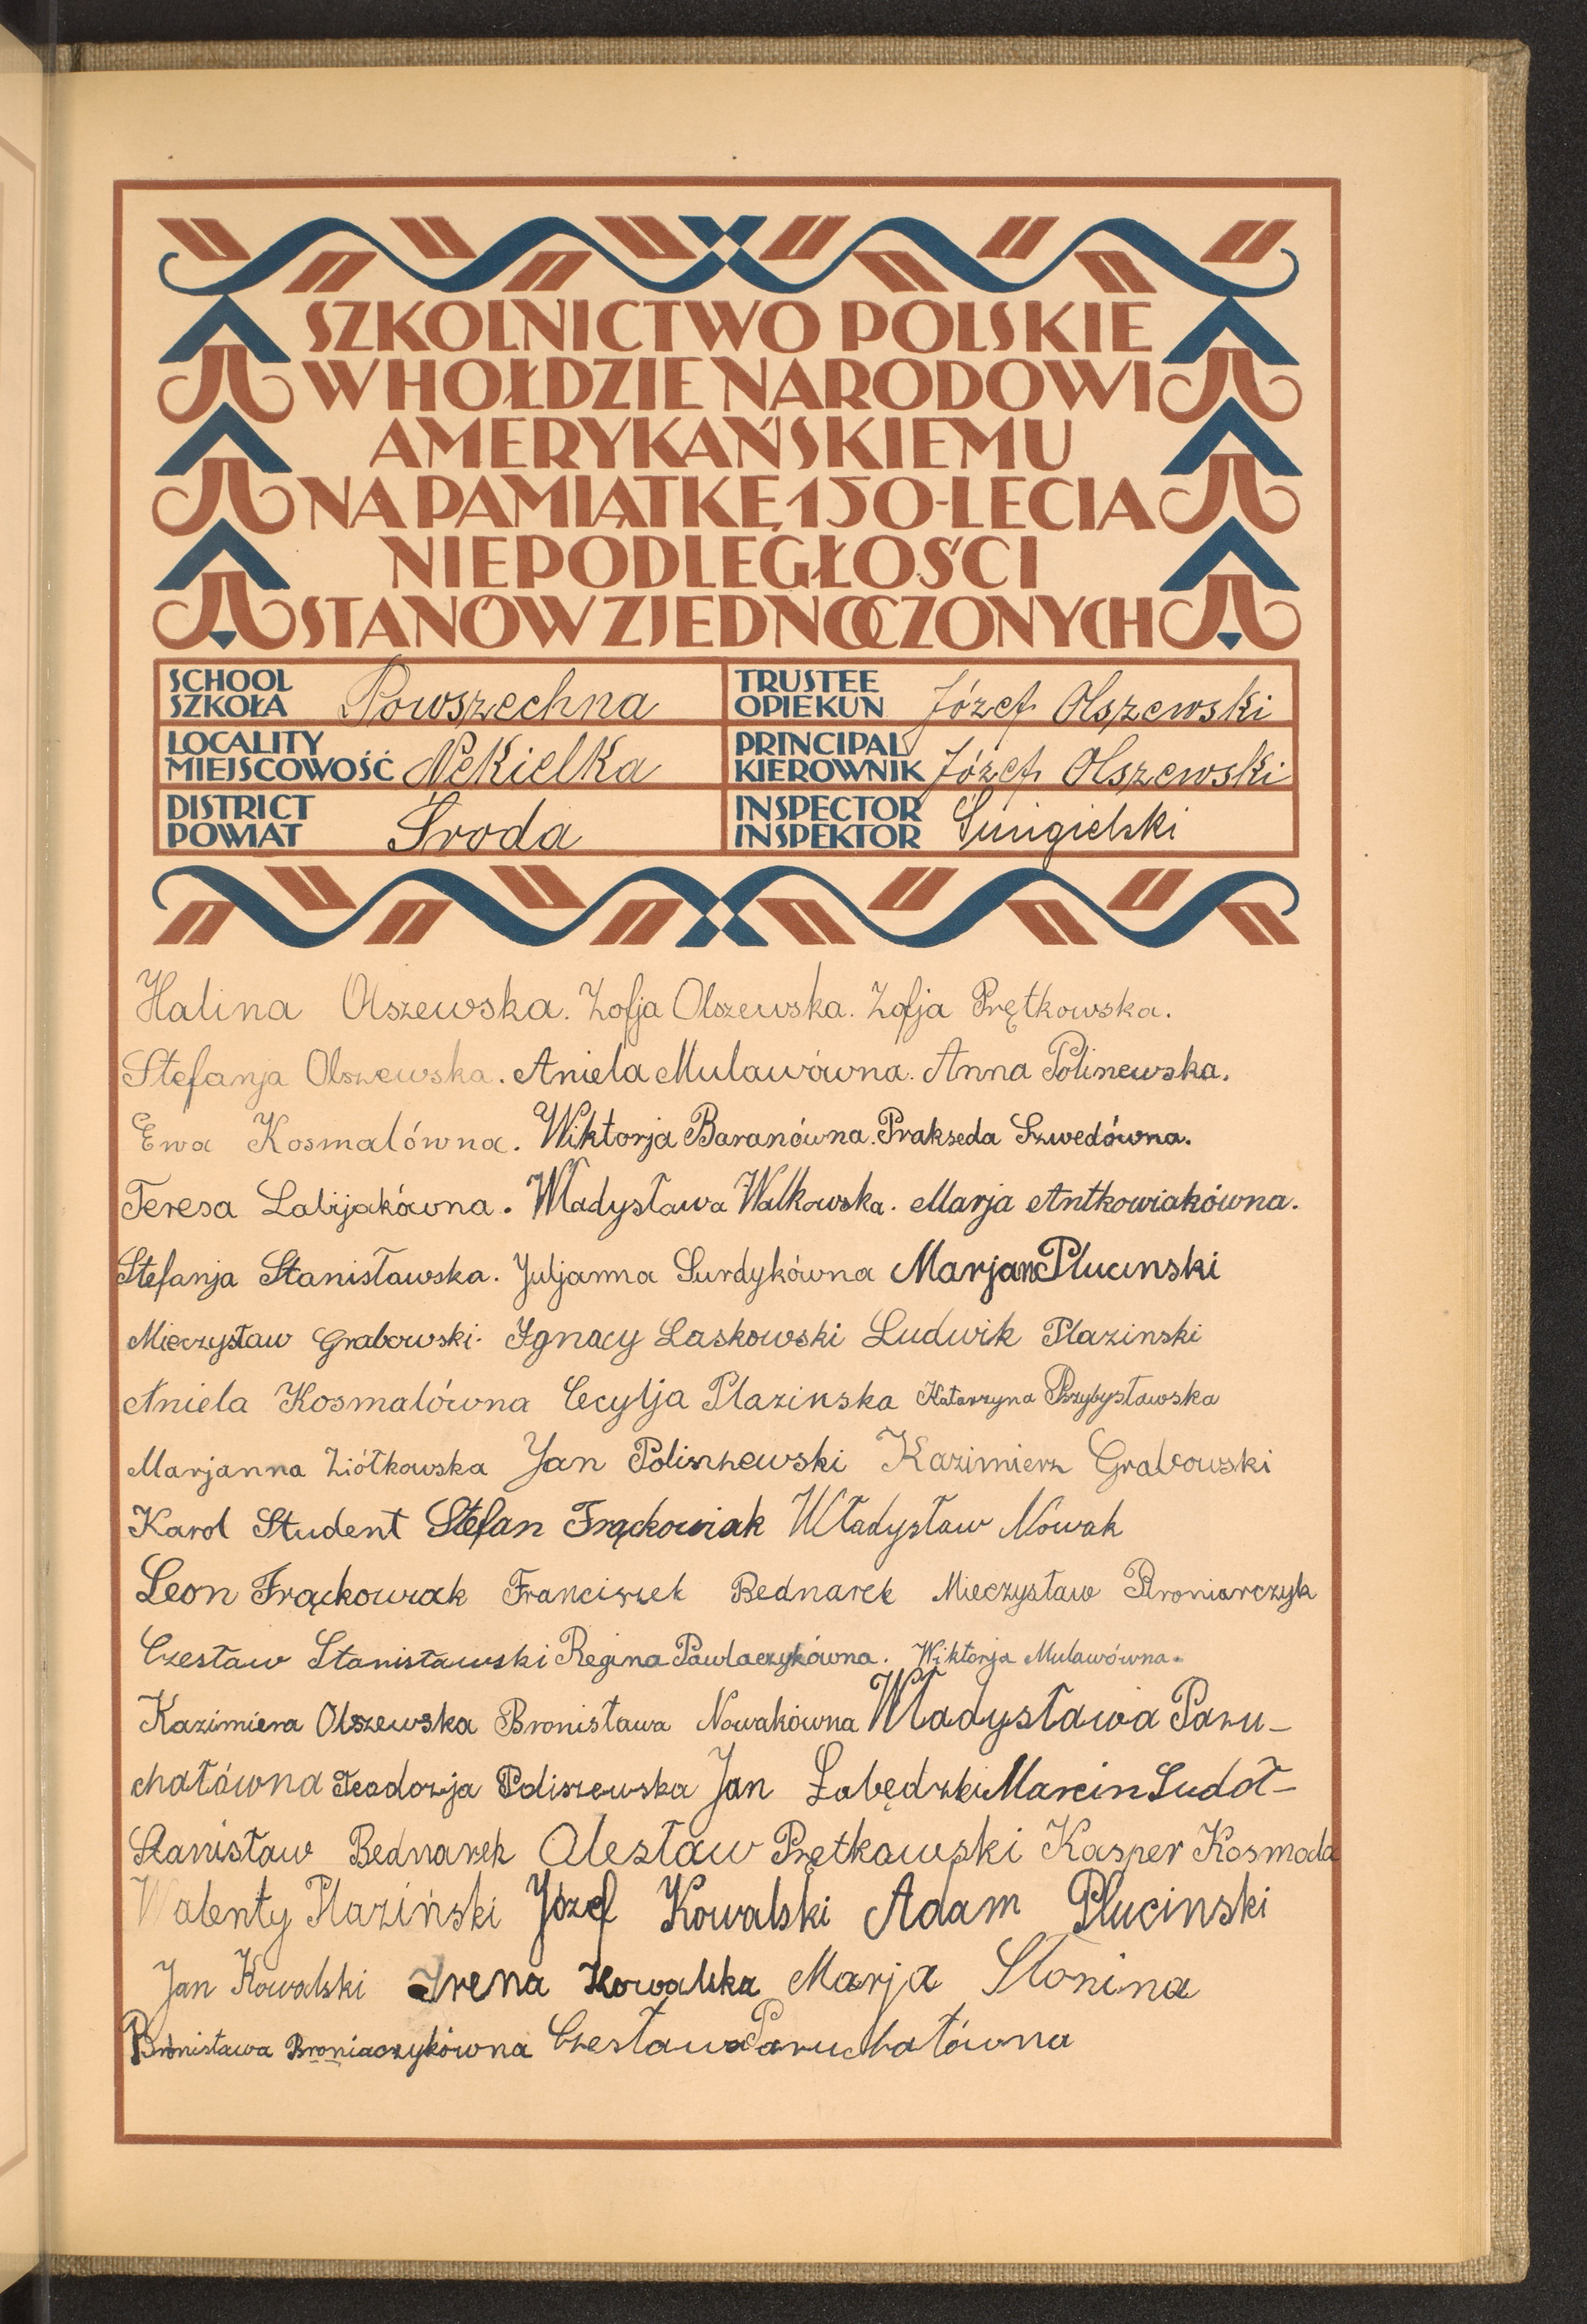 SZKOLNICTWO POLSKIE
W HOŁDZIE NARODOWI
AMERYKAŃSKIEMU
NA PAMIĄTKĘ 150-LECIA
NIEPODLEGŁOŚCI
STANÓW ZJEDNOCZONYCH
SCHOOL
SZKOŁA Powszechna
TRUSTEE
OPIEKUN Józef Olszewski
LOCALITY
MIEJSCOWOŚĆ Nekielka
PRINCIPAL
KIEROWNIK Józef Olszewski
DISTRICT
POWIAT Środa
INSPECTOR
INSPEKTOR
Halina Olszewska. Zofja Olszewska. Zofja Prętkowska.
Stefanja Olszewska. Aniela Mulawówna. Anna Polinewska.
Ewa Kosmalówna. Wiktorja Baranówna. Prakseda Szwedówna.
Teresa Labijakówna. Władysława Walkowska. Marja Antkowiakówna.
Stefanja Stanisławska. Juljanna Surdykówna Marjan Plucinski
Mieczysław Grabowski. Ignacy Laskowski Ludwik Plazinski
Aniela Kosmalówna Cecylja Plazinska Katarzyna Przybysławska
Marjanna Ziółkowska Jan Poliszewski Kazimierz Grabowski
Karol Student Stefan Frąckowiak Władysław Nowak
Leon Frąckowiak Franciszek Bednarek Mieczysław Broniarczyk
Czesław Stanisławski Regina Pawlaczykówna. Wiktorja Mulawówna.
Kazimiera Olszewska Bronisława Nowakówna Władysława Paru-
chatówna Teodozja Poliszewska Jan Łabędzki Marcin Sudoł-
Stanisław Bednarek Olesław Prętkowski Kasper Kosmala
Walenty Plaziński Józef Kowalski Adam Plucinski
Jan Kowalski Irena Kowalska Marja Słonina
Bronisława Broniaczykówna Czesława Paruchatówna